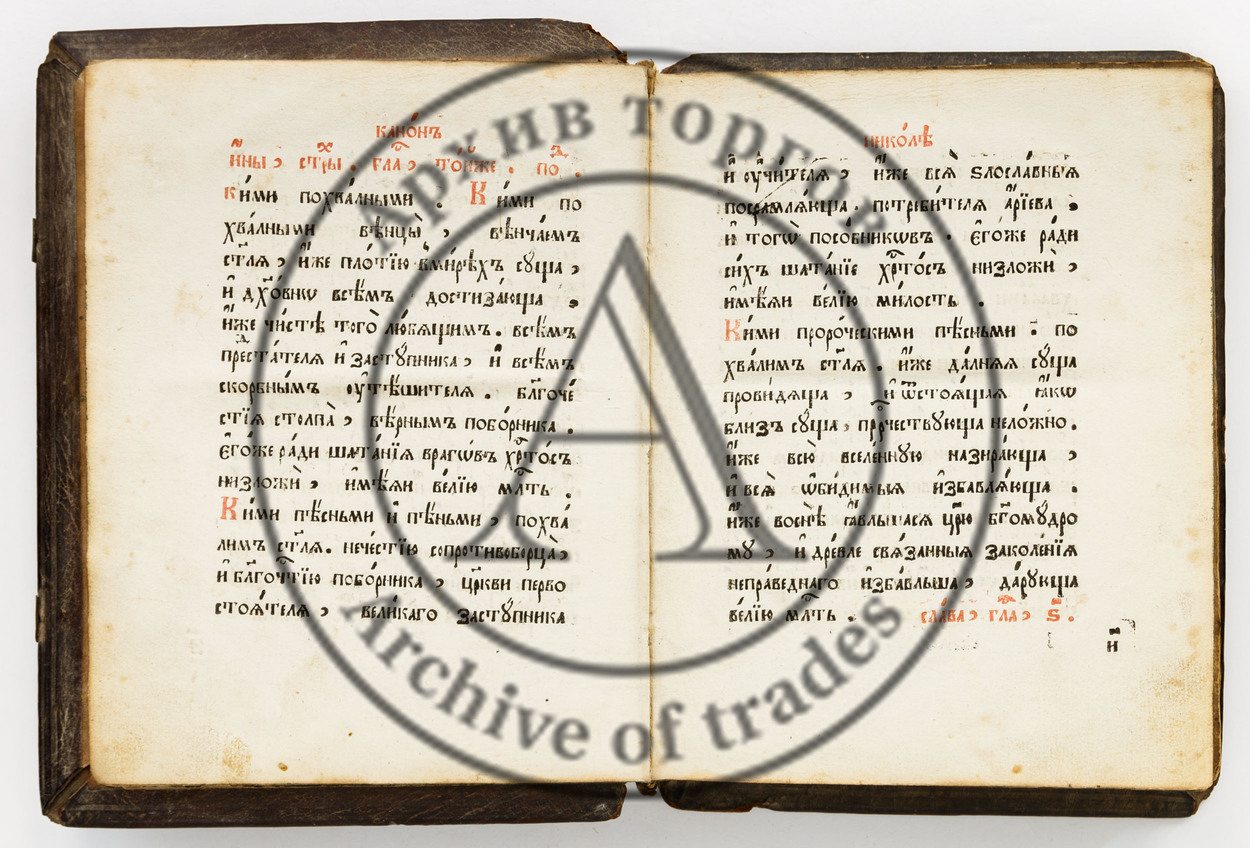 канѡ́нъ
и҆́ны , стⷯры . гла҃ , то́йже . поⷣ .
ки́ми похва́лными : Ки́ми по
хва́лными вѣнцы̀ , вѣнча́емъ
ст҃ля , и҆́же пло́тїю вми́рѣхъ су́ща ,
и҆ дх҃о́внѡ всѣ́мъ достиза́юща ,
и҆́же чи́стѣ того̀ лю́бящимъ . всѣ́мъ
преⷣста́теля и҆ засту́пника , и҆ всѣ́мъ
ско́рбнымъ ᲂу҆тѣ́шителя . бл҃гоче́
стїя столпа̀ , вѣ́рнымъ побо́рника .
є҆го́же ра́ди шата́нїя враго́въ хрⷭ҇то́съ
низложѝ , и҆мѣ́яи ве́лїю мл҃ть .
Ки́ми пѣ́сньми и҆ пѣ́ньми , похва́
лимъ ст҃ля . нече́стїю сопротивобо́рца ,
и҆ бл҃гоч҃тїю побо́рника , цр҃кви перво
стоя́теля , вели́каго засту́пника
нико́лѣ
и҆ ᲂу҆чи́теля , и҆́же вся̀ ѕлосла́вныя
посрамля́юща . потреби́теля а҆́рїева ,
и҆ тогѡ̀ посо́бникѡвъ . є҆го́же ра́ди
си́хъ шата́нїе хрⷭ҇то́съ низложѝ ,
и҆мѣ́яи ве́лїю ми́лость .
Ки́ми проро́ческими пѣ́сньми : по
хва́лимъ ст҃ля . и҆́же да́лняя су́ща
прови́дяща , и҆ ѿстоя́щая ꙗ҆́кѡ
бли́зъ су́ща , прⷪ҇ро́чествующа нело́жно .
и҆́же всю̀ вселе́нную назира́юща ,
и҆ вся̀ ѡ҆би́димыя и҆збавля́юща .
и҆́же во́снѣ ꙗ҆́вльшася цр҃ю̀ бг҃ому́дро
му , и҆ дре́вле свя́занныя заколе́нїя
непра́веднаго и҆зба́вльша , да́рующа
ве́лїю мл҃ть . сла́ва , гла҃ , ѕ҃ .
и҆
Архив торгов
Archive of trades